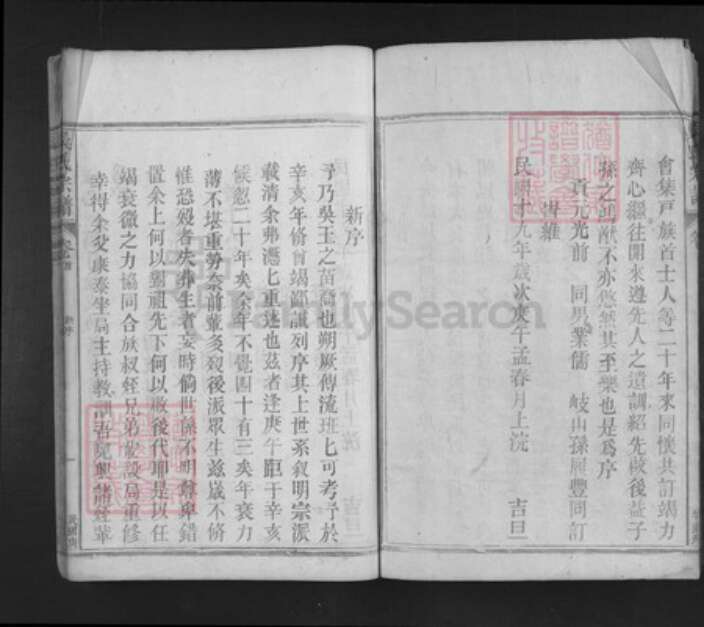 會集戶族首士人等二十年來同懷共訂竭力
齊心繼往開來遵先人之遺訓紹先啟後益子
孫之 猷不亦悠然其至樂也是爲序
貢元光前 同男業儒 岐山孫履豐同訂
維
民國十九年歲次庚午孟春月上浣 吉旦
新序
予乃吳王之苗裔也朔厥傳流班七可考予於
辛亥年修曾竭鄙誠列序其上世系敘明宗派
載清余弗憑七重述也茲者逢庚午距于辛亥
候忽二十年矣余年不覺四十有三矣年衰力
薄不堪重勞奈前輩多歿後派眾生茲歲不修
惟恐歿者失葬生者妄時倘世係不明尊卑錯
置余上何以對祖先下何以啟後代聊是以任
竭衰微之力協同合族叔姪兄弟 設局重修
幸得余父康泰坐局主持教訓吾兄與諸姪輩
氏宗譜
FamilySearch